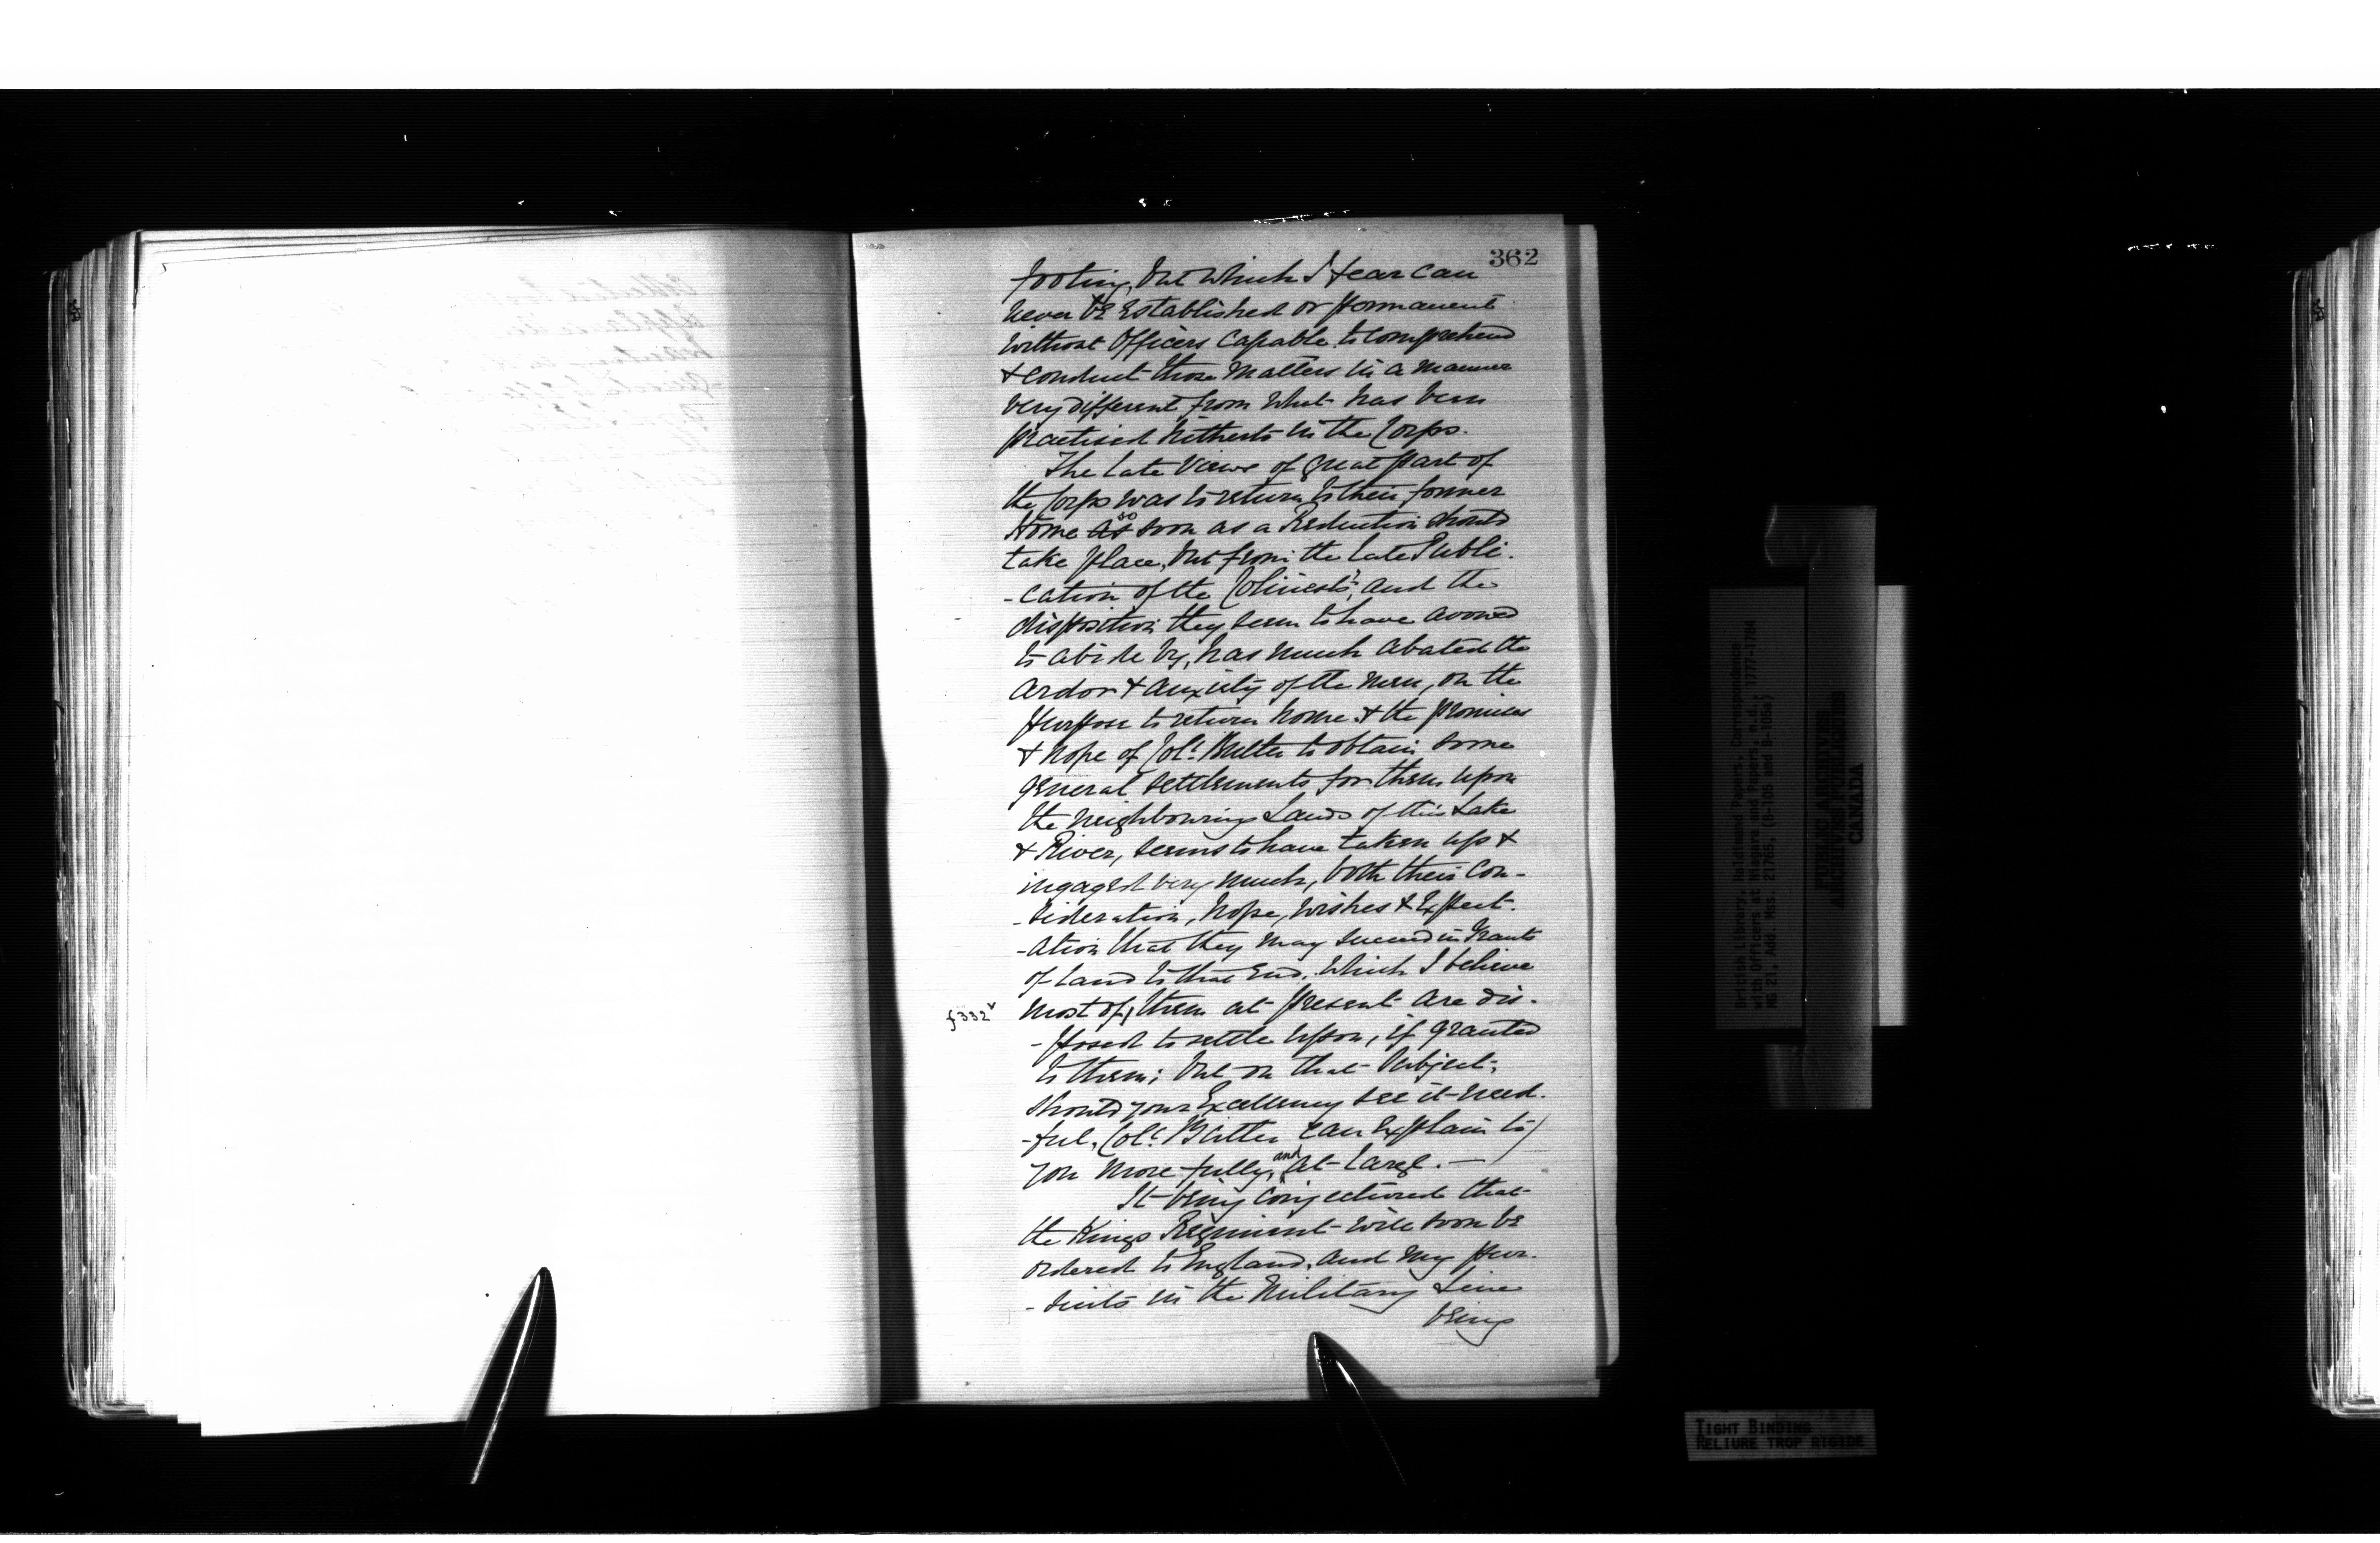 362
footing, but which I fear can
never be Established or permanent
without Officers Capable to comprehend
& conduct those Matters in a manner
very different from what has been
practised hitherto in the Corps.
The late Views of great part of
the Corps was to return to their former
Home as so soon as a Reduction should
take place, but from the late Publi-
-cation of the and the
disposition they seem to have avowed
to abide by, has much abated the
ardor & anxiety of the men, on the
purpose to return home & the promises
& hope of Colº Butler to obtain some
general settlements for them upon
the Neighbouring Lands of this Lake
& River, seems to have taken up &
ingaged very much, both their Con-
-sideration, hope, wishes & Expect-
-ation that they may succeed in Grants
of Land to that End, which I believe
f332v most of them at present are dis-
-posed to settle upon, if granted
to them; but on that Subject,
should your Excellency see it need-
-ful, Colº Butler can Explain to
you more fully, and at large. —
It being Conjectured that
the Kings Regiment will soon be
ordered to England, and my pur-
-suits in the Military Line
being
British Library, Haldimand Papers, Correspondence
with Officers at Niagara and Papers, n.d., 1777-1784
MG 21, Add. Mss. 21765, (B-105 and B-105a)
PUBLIC ARCHIVES
ARCHIVES PUBLIQUES
CANADA
TIGHT BINDING
RELIURE TROP RIGIDE